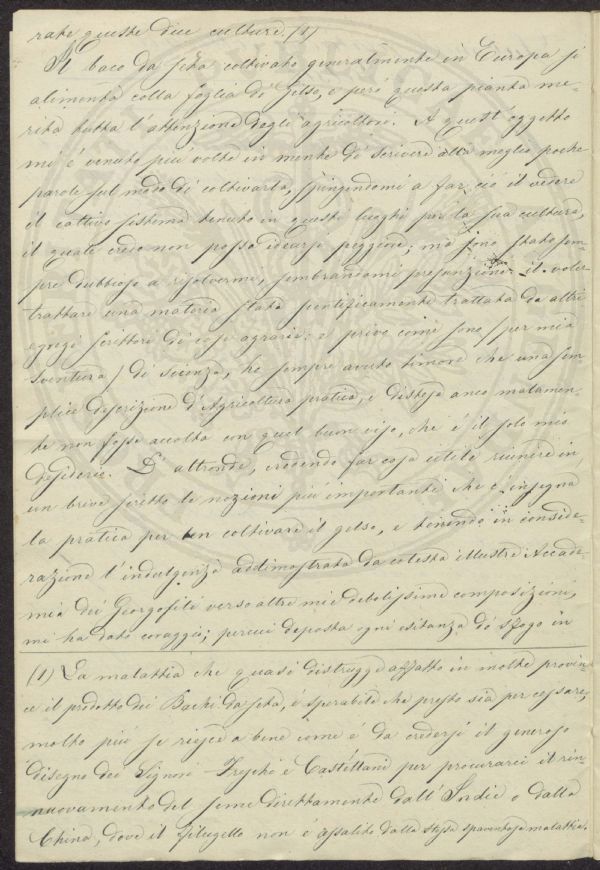 rate queste due culture. (1)
Il baco da seta coltivato generalmente in Europa si
alimenta colla foglia di Gelso, e però questa pianta me-
rita tutta l'attenzione degli agricoltori. A quest'oggetto
mi è venuto più volte in mente di scrivere alla meglio poche
parole sul modo di coltivarla, spingendomi a far ciò il vedere
il cattivo sistema tenuto in questi luoghi per la sua cultura,
il quale credo non possa idearsi peggiore; ma sono stato sem-
pre dubbioso a risolvermi, sembrandomi presunzione il voler
trattare una materia stata scientificamente trattata da altri
egregi scrittori di cose agrarie; e privo come sono (per mia
sventura) di scienza, ho sempre avuto timore che una sem
plice descrizione d'Agricoltura pratica, e distesa anco malamen-
te non fosse accolta con quel buon viso, che è il solo mio
desiderio. D'altronde, credendo far cosa utile riunire in
un breve scritto le nozioni più importanti che c'insegna
la pratica per ben coltivare il gelso, e tenendo in conside-
razione l'indulgenza addimostrata da cotesta illustre Accade-
mia dei Georgofili verso altre mie debolissime composizioni,
mi ha dato coraggio; percui deposta ogni esitanza do sfogo in
(1) La malattia che quasi distrugge affatto in molte provin-
ce il prodotto dei Bachi da seta, è sperabile che presto sia per cessare,
molto più se riesce a bene come è da credersi il generoso
disegno dei Signori Freschi e Castellani per procurarci il rin
nuovamento del seme direttamente dall'Indie o dalla
China, dove il filugello non è assalito dalla stessa spaventosa malattia.